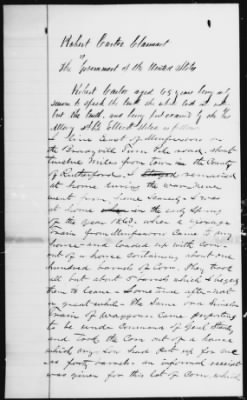 Robert Carter Claimant
vs
The Government of the United States
Robert Carter aged 65 years being
sworn to speak the truth the whole truth
but the truth, and being examined by the
I live East of Murfreesboro on
the Bradyville Turn Pike road, about
twelve miles from town in the County
of Rutherford. I remained
at home during the war, never
went from home scarcely, I was
at home in the early Spring
of the year 1863, when a forage
train from Murfreesboro came to my
house and loaded up with Corn
out of a house containing about one
hundred barrels of Corn. They took
all but about 5 barrels which I begged
them to leave. Some time after that
The same or a similar
train of Waggons Came
to be under Command of Genl
and took the Corn out of a house
which my Son had put up for me
forty barrels. an informal receipt
was given for this lot of Corn which